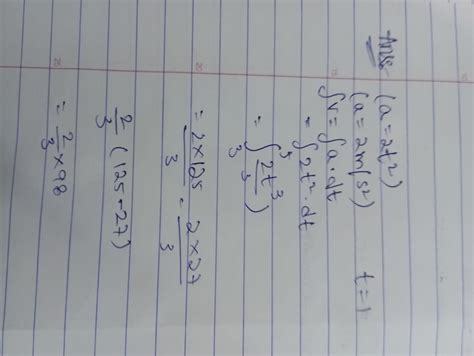 Ans (a = 2t²)
(a = 2m/s²) t = 1
∫v = ∫a.dt
= ∫2t².dt
= ∫₃⁵ (2t³/3)
= 2×125/3 - 2×27/3
2/3 (125-27)
= 2/3 × 98